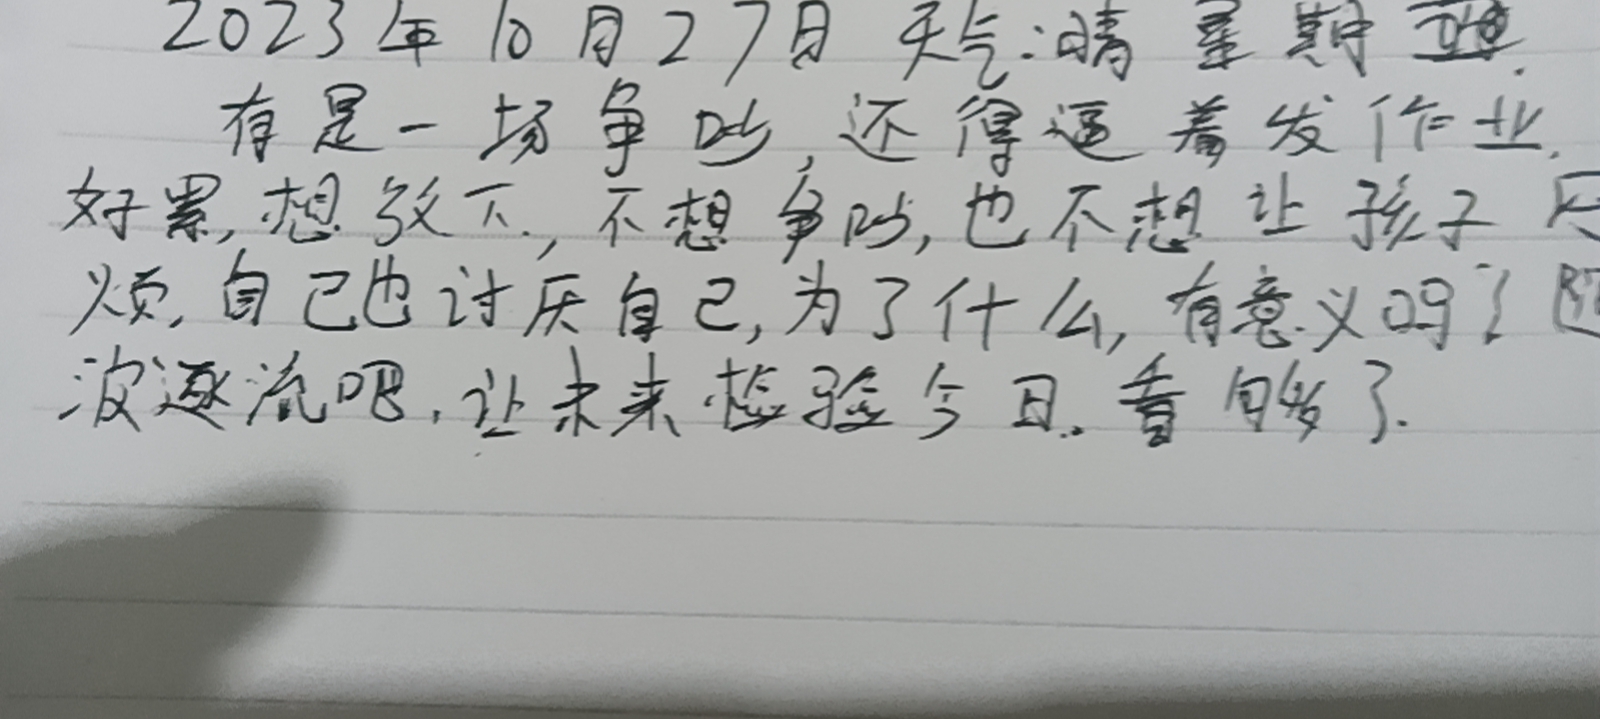 2023年10月27日 天气:晴 星期
有是一场争吵,还得逼着发作业.
好累,想放下,不想争吵,也不想让孩子
烦,自己也讨厌自己,为了什么,有意义吗?
波逐流吧,让未来检验今日.看够了.